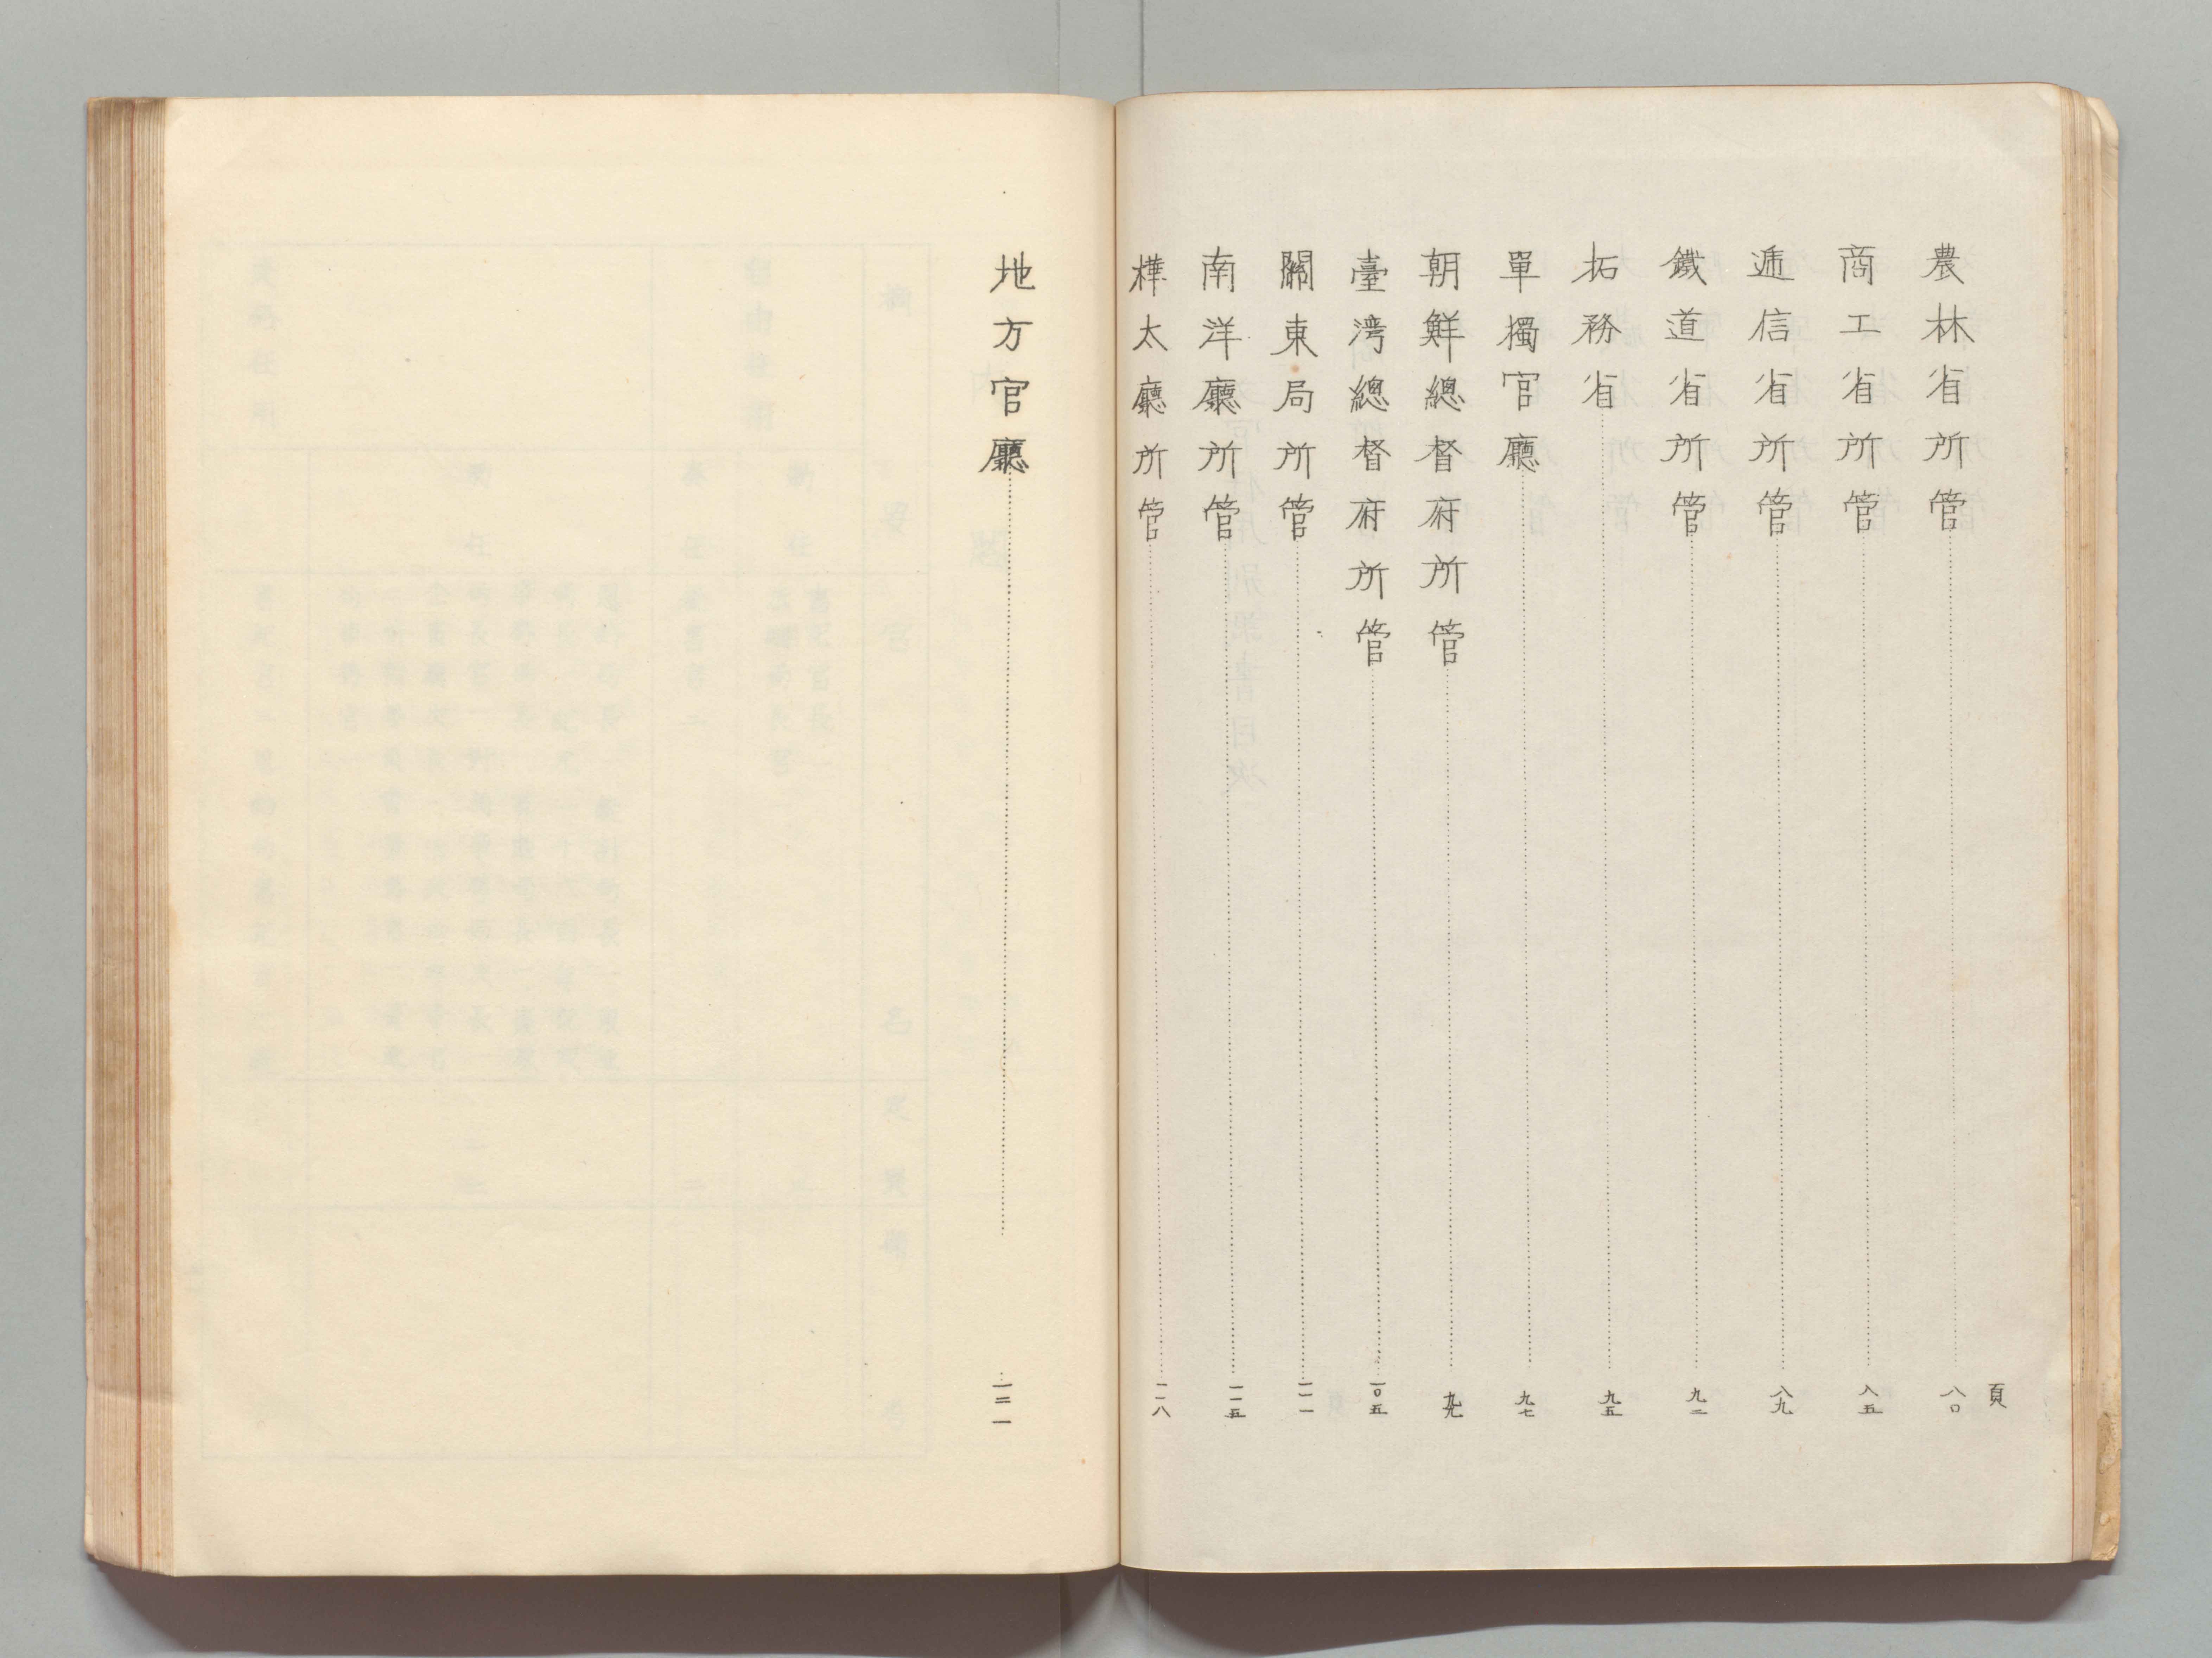 頁
農林省所管……八〇
商工省所管……八五
逓信省所管……八九
鐵道省所管……九二
拓務省……九五
單獨官廳……九七
朝鮮總督府所管……九九
臺湾總督府所管……一〇五
關東局所管……一一一
南洋廳所管……一一五
樺太廳所管……一一八
地方官廳……一二一